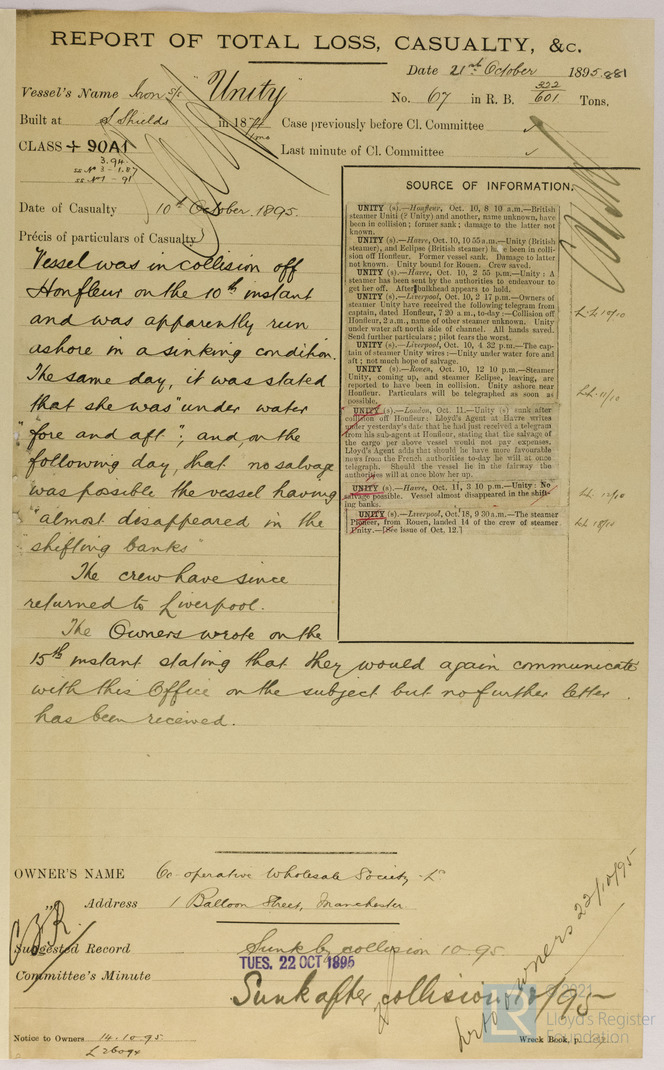 REPORT OF TOTAL LOSS, CASUALTY, &c.
Date 21st October 1895. 881
Vessel's Name Iron s/s "Unity"
No. 67 in R. B. 322 / 601 Tons.
Built at S Shields in 18
Case previously before Cl. Committee ✓
CLASS + 90A1
Last minute of Cl. Committee ✓
3.94.
ss No 3 - 1.87
ss No 1 - 91
Date of Casualty 10th October 1895.
Précis of particulars of Casualty
Vessel was in collision off
Honfleur on the 10th instant
and was apparently run
ashore in a sinking condition.
The same day, it was stated
that she was "under water
"fore and aft"; and on the
following day, that no salvage
was possible the vessel having
"almost disappeared in the
"shifting banks"
The crew have since
returned to Liverpool.
The Owners wrote on the
15th instant stating that they would again communicate
with this Office on the subject but no further letter
has been received.
SOURCE OF INFORMATION.
UNITY (s).—Honfleur, Oct. 10, 8 10 a.m.—British
steamer Uniti (? Unity) and another, name unknown, have
been in collision; former sank; damage to the latter not
known.
UNITY (s).—Havre, Oct. 10, 10 55 a.m.—Unity (British
steamer), and Eclipse (British steamer) have been in colli-
sion off Honfleur. Former vessel sank. Damage to latter
not known. Unity bound for Rouen. Crew saved.
UNITY (s).—Havre, Oct. 10, 2 55 p.m.—Unity: A
steamer has been sent by the authorities to endeavour to
get her off. After bulkhead appears to hold.
UNITY (s).—Liverpool, Oct. 10, 2 17 p.m.—Owners of
steamer Unity have received the following telegram from
captain, dated Honfleur, 7 20 a.m., to-day:—Collision off
Honfleur, 2 a.m., name of other steamer unknown. Unity
under water aft north side of channel. All hands saved.
Send further particulars; pilot fears the worst.
UNITY (s).—Liverpool, Oct. 10, 4 22 p.m.—The cap-
tain of steamer Unity wires:—Unity under water fore and
aft; not much hope of salvage.
UNITY (s).—Rouen, Oct. 10, 12 10 p.m.—Steamer
Unity, coming up, and steamer Eclipse, leaving, are
reported to have been in collision. Unity ashore near
Honfleur. Particulars will be telegraphed as soon as
possible.
UNITY (s).—London, Oct. 11.—Unity (s) sank after
collision off Honfleur: Lloyd's Agent at Havre writes
under yesterday's date that he had just received a telegram
from his sub-agent at Honfleur, stating that the salvage of
the cargo per above vessel would not pay expenses.
Lloyd's Agent adds that should he have more favourable
news from the French authorities to-day he will at once
telegraph. Should the vessel lie in the fairway the
authorities will at once blow her up.
UNITY (s).—Havre, Oct. 11, 3 10 p.m.—Unity: No
salvage possible. Vessel almost disappeared in the shift-
ing banks.
UNITY (s).—Liverpool, Oct. 18, 9 30 a.m.—The steamer
Pioneer, from Rouen, landed 14 of the crew of steamer
Unity.—[See issue of Oct. 12.]
LL 10/10
LL 11/10
LL 12/10
LL 18/10
OWNER'S NAME Co-operative Wholesale Society Ld
" Address 1 Balloon Street, Manchester
Suggested Record Sunk by collision 10.95
TUES. 22 OCT 1895
Committee's Minute
Sunk after collision 10/95
owners 23/10/95
Notice to Owners 14.10.95
Wreck Book, p.
© 2021
LR
Lloyd's Register
Foundation